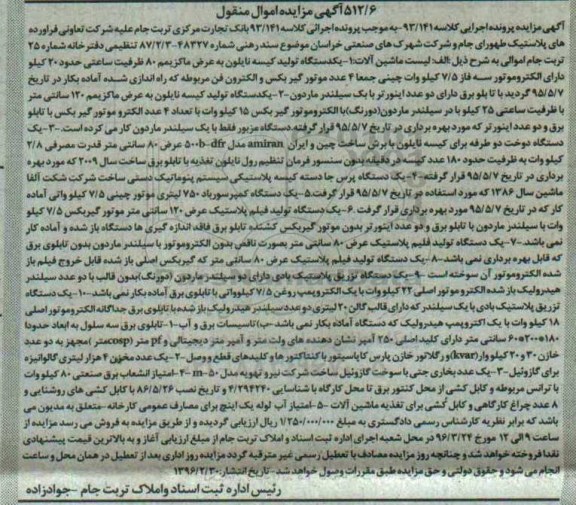 ۵۱۲/۶ آگهی مزایده اموال منقول
آگهی مزایده پرونده اجرایی کلاسه ۹۳/۱۴۱-به موجب پرونده اجرائی کلاسه ۹۳/۱۴۱ بانک تجارت مرکزی تربت جام علیه شرکت تعاونی فراورده
های پلاستیک طهورای جام و شرکت شهرک های صنعتی خراسان موضوع سند رهنی شماره ۴۸۳۲۷-۸۷/۲/۳ تنظیمی دفترخانه شماره ۲۵
تربت جام اموالی به شرح ذیل :الف: لیست ماشین آلات:۱-یکدستگاه تولید کیسه نایلون به عرض ماکزیمم ۸۰ ظرفیت ساعتی حدود ۲۰ کیلو
دارای الکتروموتور سه فاز ۷/۵ کیلو وات چینی جمعا ۴ عدد موتور گیر بکس و الکترون فن مربوطه که راه اندازی شده آماده بکار در تاریخ
۹۵/۵/۷ گردید با تابلو برق دارای دو عدد اینورتر با یک سیلندر ماردون ۲-یکدستگاه تولید کیسه نایلون به عرض ماکزیمم ۱۲۰ سانتی متر
با ظرفیت ساعتی ۲۵ کیلو با در سیلندر ماردون(دورنگ)با الکتروموتور گیر بکس ۱۵ کیلو وات با تعداد ۴ عدد الکترو موتور گیر بکس با تابلو
برق و دو عدد اینورتر که مورد بهره برداری در تاریخ ۹۵/۵/۷ قرار گرفته دستگاه مزبور فقط با یک سیلندر ماردون کار می کرده است.۳-یک
دستگاه دوخت دو طرفه برای کیسه نایلون با برش ساخت چین و ایران amiran مدل ۵۰۰b-dfr عرض ۸۰ سانتی متر قدرت مصرفی ۲/۸
کیلو وات به ظرفیت حدود ۱۸۰ عدد کیسه در دقیقه بدون سنسور فرمان تنظیم رول نایلون تغذیه با تابلو برق ساخت سال ۲۰۰۹ که مورد بهره
برداری در تاریخ ۹۵/۵/۷ قرار گرفته.۴-یک دستگاه پرس جا دسته کیسه پلاستیکی سیستم پنوماتیک دستی ساخت شرکت شکت آلفا
ماشین سال ۱۳۸۶ که مورد استفاده در تاریخ ۹۵/۵/۷ قرار گرفت ۵-یک دستگاه کمپرسورباد ۷۵۰ لیتری موتور چینی ۷/۵ کیلو واتی آماده
کار که در تاریخ ۹۵/۵/۷ مورد بهره برداری قرار گرفت .۶-یک دستگاه تولید فیلم پلاستیک عرض ۱۲۰ سانتی متر موتور گیربکس ۷/۵ کیلو
وات با سیلندر ماردون با تابلو برق و دو عدد اینورتر بدون موتور گیربکس کشنده تابلو برق فاقد اندازه گیری ها دستگاه باز شده و آماده کار
نمی باشد.۷-یک دستگاه تولید فلیم پلاستیک عرض ۸۰ سانتی متر بصورت ناقص بدون الکتروموتور با سیلندر ماردون بدون تابلوی برق
که قابل بهره برداری نمی باشد.۸-یک دستگاه تولید فیلم پلاستیک عرض ۸۰ سانتی متر که گیربکس اصلی باز شده قابل خروج فیلم باز
شده الکتروموتور آن سوخته است -۹-یک دستگاه تزریق پلاستیک بادی دارای دو سیلندر ماردون (دورنگ)بدون قالب با دو عدد سیلندر
هیدرولیک باز شده الکترو موتور اصلی ۲۲ کیلو وات با یک الکتروپمپ روغن ۷/۵ کیلوواتی با تابلوی برق آماده بکار نمی باشد.۱۰-یک دستگاه
تزریق پلاستیک بادی با یک سیلندر که دارای قالب گالن ۲۰ لیتری دو عدد سیلندر هیدرولیک باز شده با تابلوی برق جداگانه الکتروموتور اصلی
۱۸ کیلو وات با یک اکتروپمپ هیدرولیک که دستگاه آماده بکار نمی باشد.ب) تاسیسات برق و آب-۱-تابلوی برق سه سلول به ابعاد حدودا
۶۰*۲۰۰*۱۸۰ سانتی متر دارای کلید اصلی ۲۵۰ آمپر نشان دهنده های ولت متر و آمپر متر دیجیتالی و pf متر (cosp متر)مجهز به دو عدد
خازن ۳۰ و ۲۰ کیلو وار(kvar)و رگلاتور خازن پارس کاپاسیتور با کنتاکتور ها و کلیدهای قطع و وصل ۲-یک عدد مخزن ۴ هزار لیتری گالوانیزه
برای گازوئیل ۳-یک عدد بخاری جتی با سوخت گازوئیل ساخت شرکت نیرو تهویه مدل m-۵۰ -۴-امتیاز انشعاب برق صنعتی ۸۰ کیلو وات
با ترانس مربوطه و کابل کشی از محل کنتور برق تا محل کارگاه با شناسایی ۴/۲۹۴۲۴۰ و تاریخ نصب ۸۶/۵/۲۶ با کابل کشی های روشنایی و
۸ عدد چراغ کارگاهی و کابل کشی برای تغذیه ماشین آلات -۵-امتیاز آب لوله یک اینچ برای مصارف عمومی کارخانه-متعلق به مدیون می
باشد که برابر نظریه کارشناس رسمی دادگستری به مبلغ ۱/۲۵۰/۰۰۰/۰۰۰ ریال ارزیابی گردیده و از طریق مزایده به فروش می رسد مزایده از
ساعت ۹ الی ۱۲ مورخ ۹۶/۳/۲۴ در محل شعبه اجرای اداره ثبت اسناد و املاک تربت جام از مبلغ ارزیابی آغاز و به بالاترین قیمت پیشنهادی
نقدا فروخته خواهد شد و چنانچه روز مزایده مصادف با تعطیل رسمی غیر مترقبه گردد مزایده روز اداری بعد از تعطیل در همان محل و ساعت
انجام می شود و حقوق دولتی و حق مزایده طبق مقررات وصول خواهد شد- تاریخ انتشار:۱۳۹۶/۲/۳۰
رئیس اداره ثبت اسناد واملاک تربت جام -جوادزاده